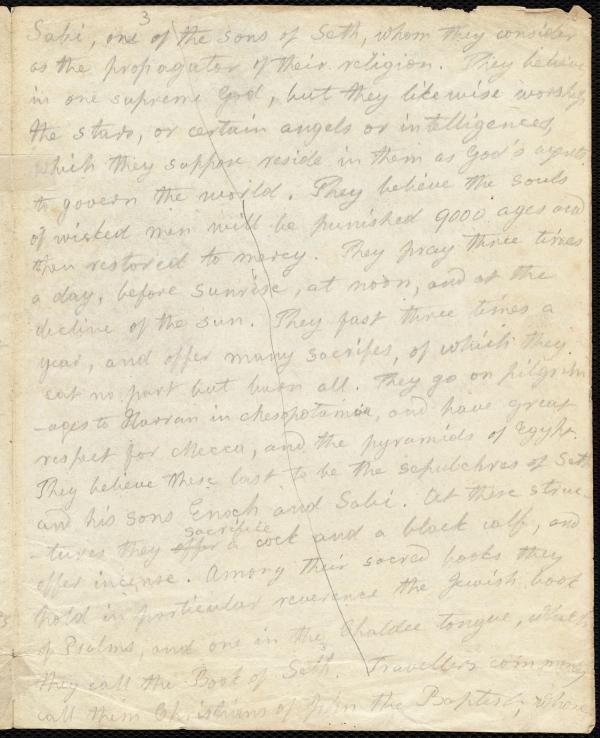 3
Sabi, one of the sons of Seth, whom they consider
as the propagator of their religion. They believe
in one supreme God, but they likewise worship
the stars, or certain angels or intelligences,
which they suppose reside in them as God's agents
to govern the world. They believe the souls
of wicked men will be punished 9000 ages and
then restored to mercy. They pray three times
a day, before sunrise, at noon, and at the
decline of the sun. They fast three times a
year, and offer many sacrifes, of which they
eat no part but burn all. They go on pilgrim
-ages to Harran in Mesopotamia, and have great
respect for Mecca, and the pyramids of Egypt.
They believe these last to be the sepulchres of Seth
and his sons Enoch and Sabi. At these struc-
sacrifice
-tures they offer a cock and a black calf, and
offer incense. Among their sacred books they
hold in particular reverence the Jewish book
of Psalms, and one in the Chaldee tongue, which
they call the Book of Seth. Travellers commonly
call them Christians of John the Baptist, whose